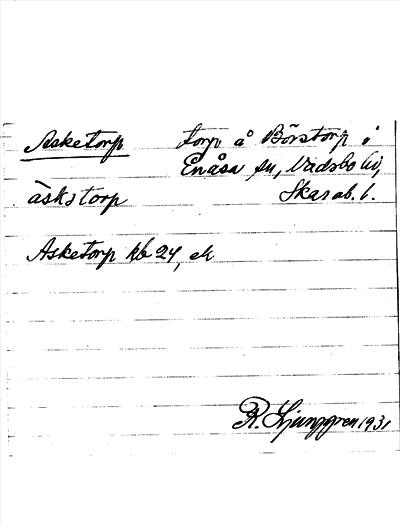 Asketorp torp å Börstorp i
Enåsa sn, Vadsbo hd,
àskstorp Skarab. l.
Asketorp kb 24, ek
R. Ljunggren 1931